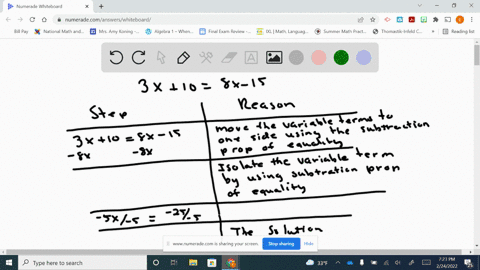 Numerade Whiteboard
numerade.com/answers/whiteboard/
Bill Pay
National Math and...
Mrs. Amy Koning -...
Algebra 1 - Whenev...
Final Exam Review -...
IXL | Math, Languag...
Summer Math Pract...
Thomastik-Infeld C...
Reading list
3x+10 = 8x-15
Step Reason
3x+10=8x-15 move the variable terms to
-8x -8x one side using the subtraction
prop of equality
Isolate the variable term
by using subtration prop
of equality
-5x/-5 = -25/-5
The Solution
www.numerade.com is sharing your screen. Stop sharing Hide
Type here to search
32°F
7:21 PM
2/24/2022